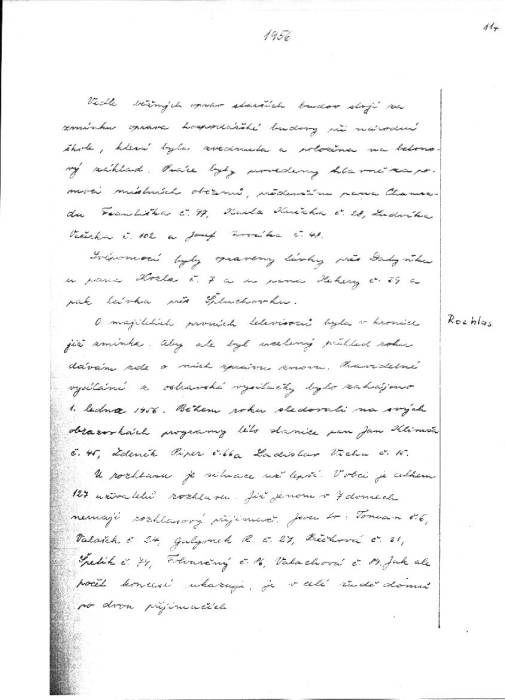 1956
117
Vedle běžných oprav starších budov stojí za
zmínku oprava hospodářské budovy při národní
škole, která byla zvednuta a položena na betono-
vý základ. Práce byly provedeny hlavně za po-
moci místních občanů, především pana
Františka č. 97, Karla č. 28, Ludvíka
č. 102 a Josef č. 48.
Svépomocí byly opraveny lávky přes
u pana Kozla č. 7 a u pana č. 29 a
pak lávka přes
O majitelích prvních televisorů byla v kronice
již zmínka. Aby ale byl ucelený přehled roku
dávám zde o nich zprávu znovu. Pravidelné
vysílání z ostravské vysílačky bylo zahájeno
1. ledna 1956. Během roku sledovali na svých
obrazovkách programy této stanice pan Jan Klimša
č. 45, Zdeněk Piper č. 66a Ladislav č. 15.
U rozhlasu je situace už lepší. V obci je celkem
127 uživatelů rozhlasu. Již jenom v 7 domech
nemají rozhlasový přijímač. Jsou to: č. 6,
Valášek č. 24, R. č. 27, č. 31,
č. 74, č. 16, Valachová č. 19. Jak ale
počet koncesí ukazuje, je v celé řadě domů
po dvou přijímačích
Rozhlas